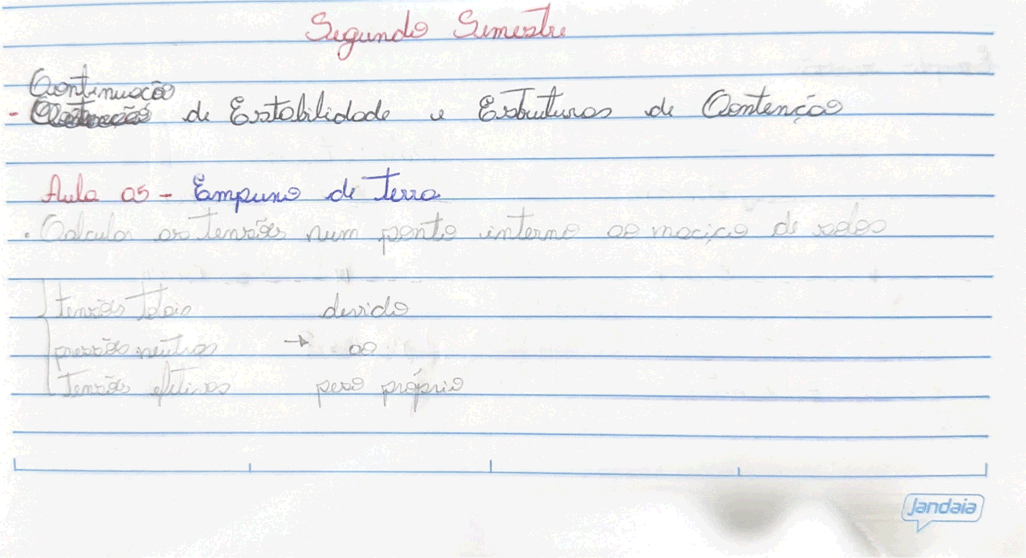 Segundo Semestre
Continuação
- de Estabilidade e Estruturas de Contenção
Aula 05 - Empuxo de Terra
. Calcular as tensões num ponto interno ao maciço de solos
tensões totais devido
pressões neutras → ao
Tensões efetivas peso próprio
jandaia